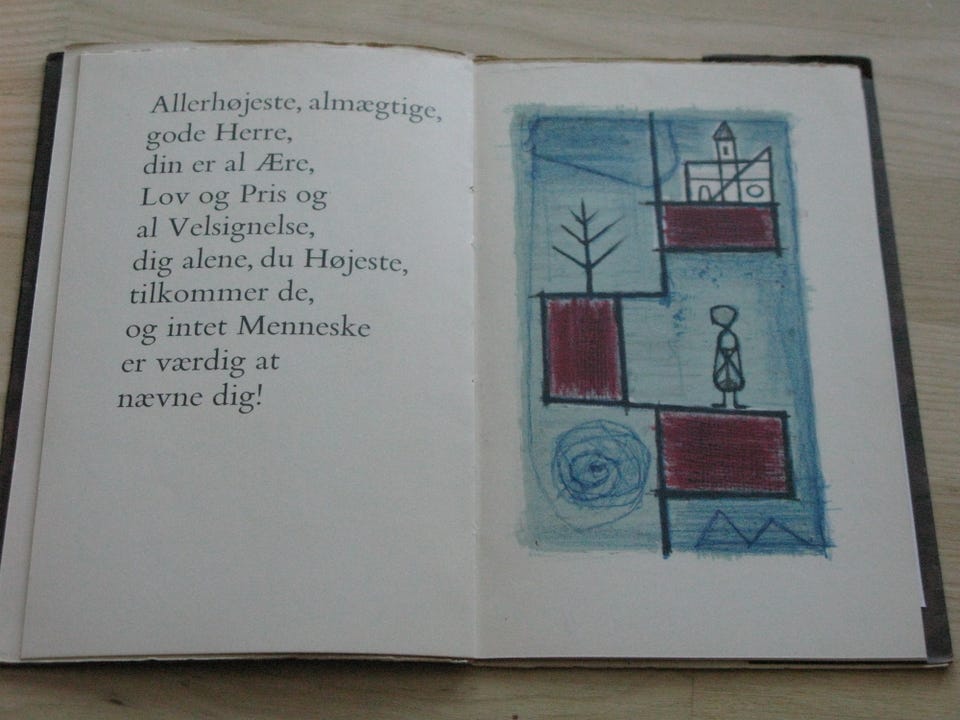 Allerhøjeste, almægtige,
gode Herre,
din er al Ære,
Lov og Pris og
al Velsignelse,
dig alene, du Højeste,
tilkommer de,
og intet Menneske
er værdig at
nævne dig!